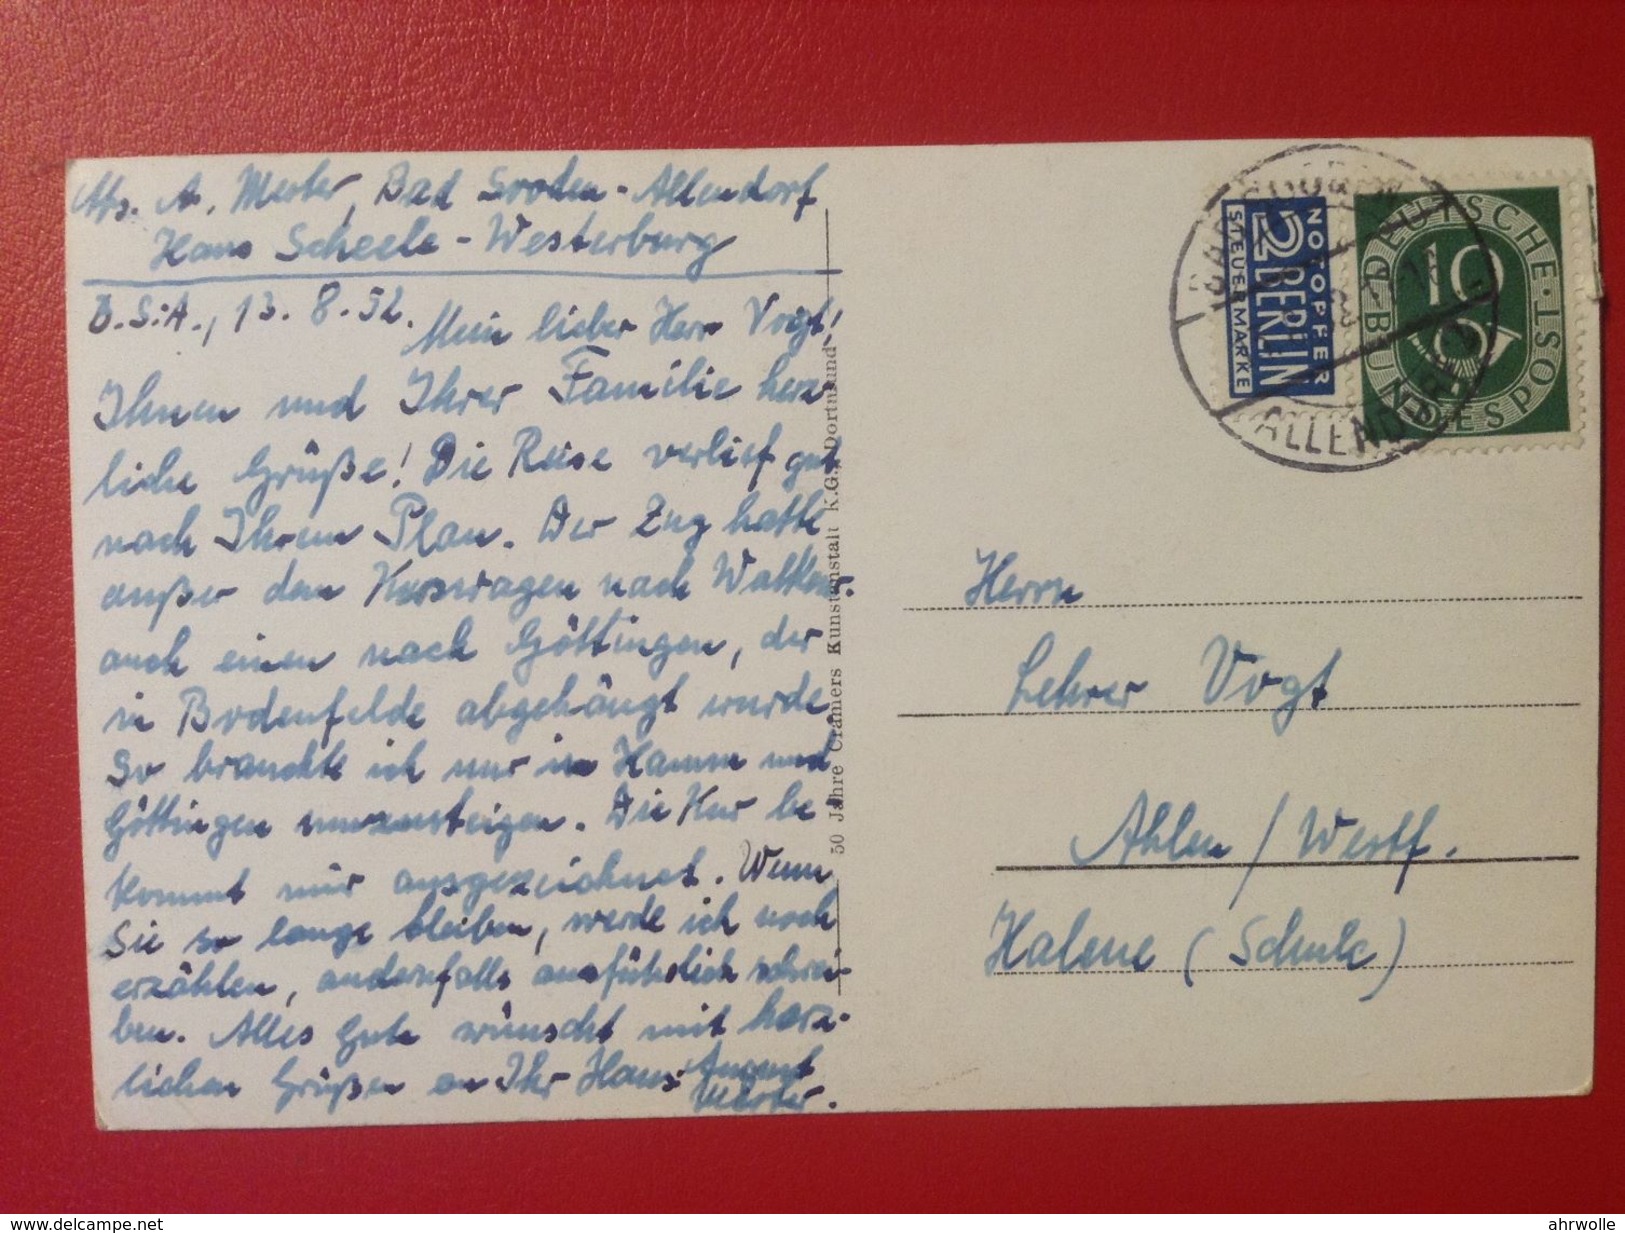 Abs. A. Merter, Bad Sooden-Allendorf
Haus Scheele-Westerburg
B.S.A., 13.8.52.
Mein lieber Herr Vogt!
Ihnen und Ihrer Familie herz-
liche Grüße! Die Reise verlief gut
nach Ihrem Plan. Der Zug hatte
außer dem Kurswagen nach Walkenr.
auch einen nach Göttingen, der
in Bodenfelde abgehängt wurde.
So brauchte ich nur in Hamm und
Göttingen umzusteigen. Die Kur be-
kommt mir ausgezeichnet. Wenn
Sie so lange bleiben, werde ich noch
erzählen, andernfalls ausführlich schrei-
ben. Alles Gute wünscht mit herz-
lichen Grüßen an Ihr Haus August
Merter.
50 Jahre Cramers Kunstanstalt K.G., Dortmund
NOTOPFER
2 BERLIN
STEUERMARKE
DEUTSCHE BUNDESPOST
10
ALLENDORF
Herrn
Lehrer Vogt
Ahlen / Westf.
Halene (Schule)
www.delcampe.net
ahrwolle